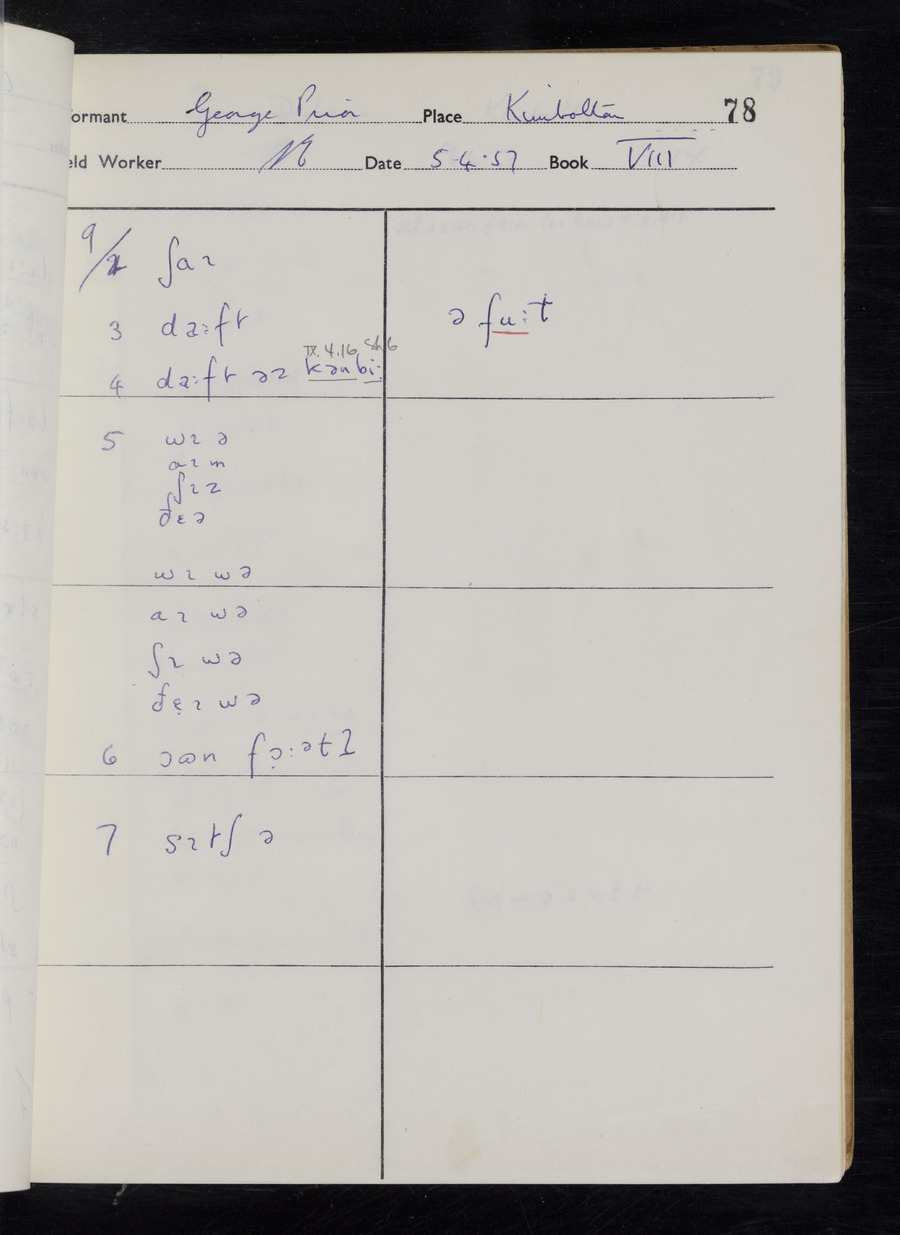 ormant George Prior Place Kimbolton 78
eld Worker Date 5·4·57 Book VIII
9/2 ʃaɪ
3 da:ft ə fu:t
IX. 4.16
4 da:ft əz kənbi:
5 wɪ ə
aɪ m
ʃɪ z
ðɛə
wɪ wə
aɪ wə
ʃɪ wə
ðɛ̣ɪ wə
6
7 sɪtʃ ə